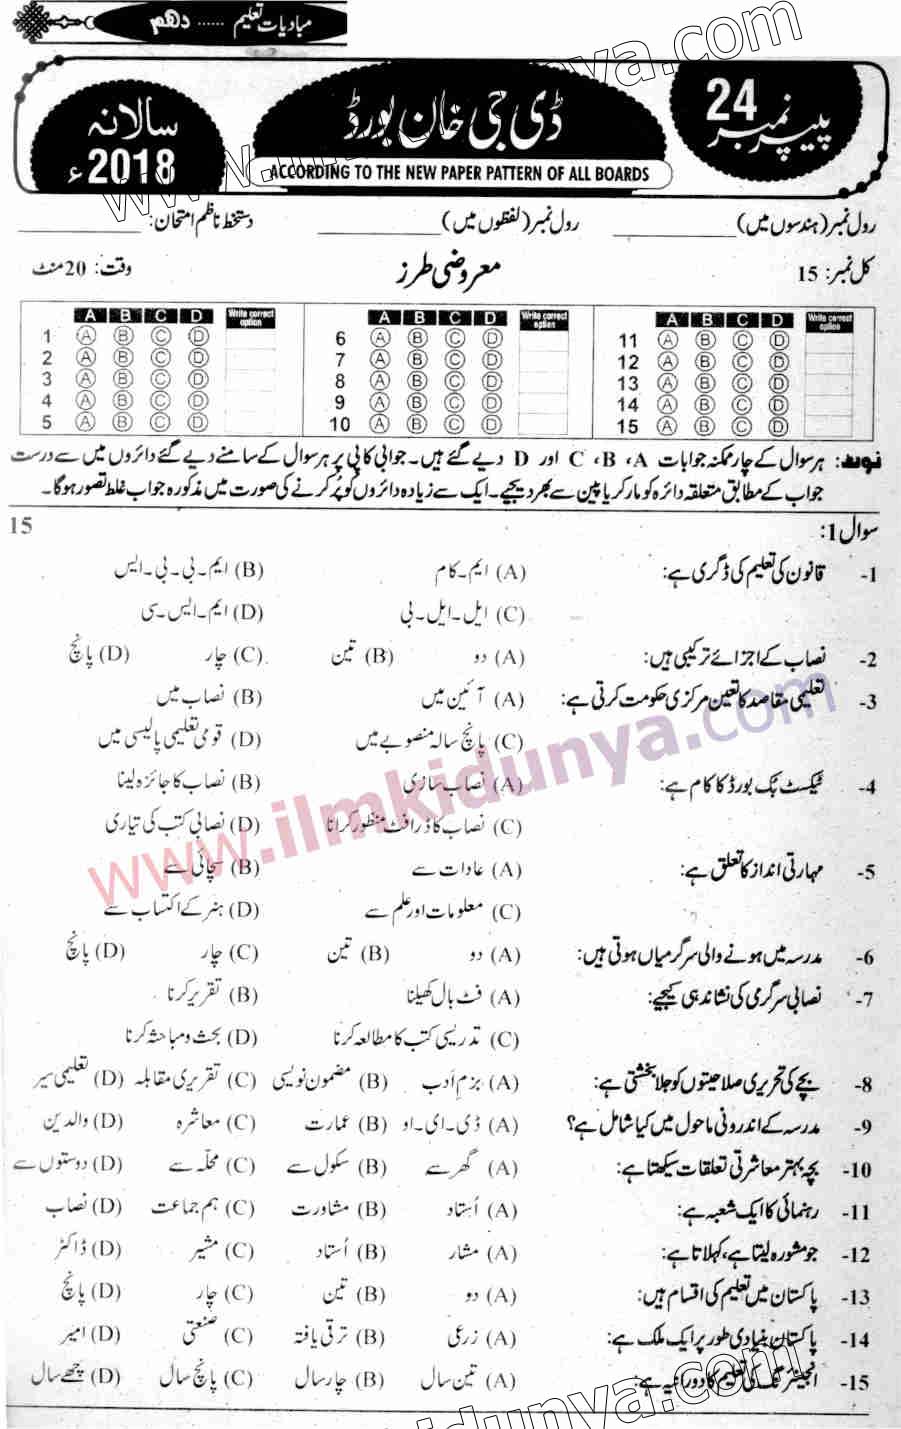 مبادیات تعلیم ...... دھم
پیپر نمبر 24
ڈی جی خان بورڈ
ACCORDING TO THE NEW PAPER PATTERN OF ALL BOARDS
سالانہ 2018ء
رول نمبر (ہندسوں میں) __________ رول نمبر (لفظوں میں) __________ دستخط ناظم امتحان: __________
کل نمبر: 15 معروضی طرز وقت: 20 منٹ
A B C D Write correct option A B C D Write correct option A B C D Write correct option
1 A B C D 6 A B C D 11 A B C D
2 A B C D 7 A B C D 12 A B C D
3 A B C D 8 A B C D 13 A B C D
4 A B C D 9 A B C D 14 A B C D
5 A B C D 10 A B C D 15 A B C D
نوٹ: ہر سوال کے چار ممکنہ جوابات A، B، C اور D دیے گئے ہیں۔ جوابی کاپی پر ہر سوال کے سامنے دیے گئے دائروں میں سے درست
جواب کے مطابق متعلقہ دائرہ کو مارکر یا پین سے بھر دیجیے۔ ایک سے زیادہ دائروں کو پُر کرنے کی صورت میں مذکورہ جواب غلط تصور ہوگا۔
سوال 1: 15
1- قانون کی تعلیم کی ڈگری ہے: (A) ایم۔کام (B) ایم۔بی۔بی۔ایس
(C) ایل۔ایل۔بی (D) ایم۔ایس۔سی
2- نصاب کے اجزائے ترکیبی ہیں: (A) دو (B) تین (C) چار (D) پانچ
3- تعلیمی مقاصد کا تعین مرکزی حکومت کرتی ہے: (A) آئین میں (B) نصاب میں
(C) پانچ سالہ منصوبے میں (D) قومی تعلیمی پالیسی میں
4- ٹیکسٹ بک بورڈ کا کام ہے: (A) نصاب سازی (B) نصاب کا جائزہ لینا
(C) نصاب کا ڈرافٹ منظور کرانا (D) نصابی کتب کی تیاری
5- مہارتی انداز کا تعلق ہے: (A) عادات سے (B) سچائی سے
(C) معلومات اور علم سے (D) ہنر کے اکتساب سے
6- مدرسہ میں ہونے والی سرگرمیاں ہوتی ہیں: (A) دو (B) تین (C) چار (D) پانچ
7- نصابی سرگرمی کی نشاندہی کیجیے: (A) فٹ بال کھیلنا (B) تقریر کرنا
(C) تدریسی کتب کا مطالعہ کرنا (D) بحث و مباحثہ کرنا
8- بچے کی تحریری صلاحیتوں کو جلا بخشتی ہے: (A) بزمِ اَدب (B) مضمون نویسی (C) تقریری مقابلہ (D) تعلیمی سیر
9- مدرسہ کے اندرونی ماحول میں کیا شامل ہے؟ (A) ڈی۔ای۔او (B) عمارت (C) معاشرہ (D) والدین
10- بچہ بہتر معاشرتی تعلقات سیکھتا ہے: (A) گھر سے (B) سکول سے (C) محلّہ سے (D) دوستوں سے
11- رہنمائی کا ایک شعبہ ہے: (A) اُستاد (B) مشاورت (C) ہم جماعت (D) نصاب
12- جو مشورہ لیتا ہے، کہلاتا ہے: (A) مشار (B) اُستاد (C) مشیر (D) ڈاکٹر
13- پاکستان میں تعلیم کی اقسام ہیں: (A) دو (B) تین (C) چار (D) پانچ
14- پاکستان بنیادی طور پر ایک ملک ہے: (A) زرعی (B) ترقی یافتہ (C) صنعتی (D) امیر
15- انجینئرنگ کی تعلیم کا دورانیہ ہے: (A) تین سال (B) چار سال (C) پانچ سال (D) چھے سال
www.ilmkidunya.com